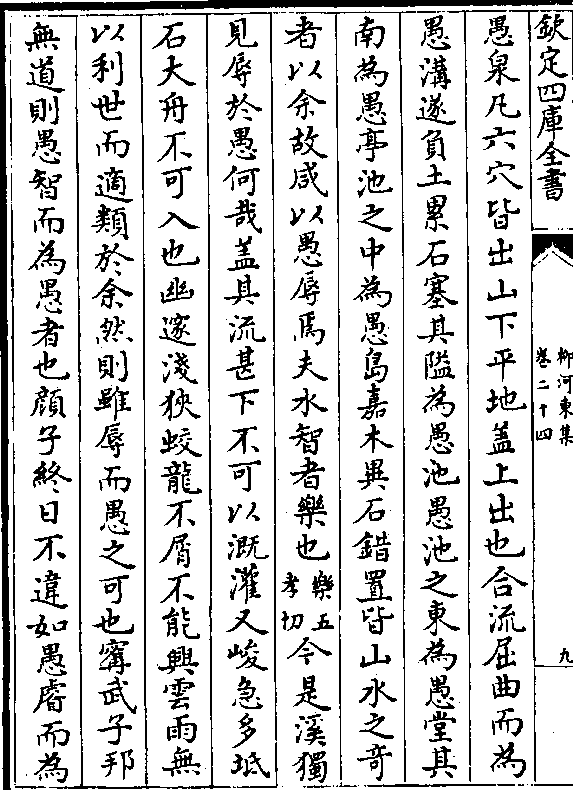 欽定四庫全書
柳河東集
卷二十四
九
愚泉凡六穴皆出山下平地蓋上出也合流屈曲而為
愚溝遂負土累石塞其隘為愚池愚池之東為愚堂其
南為愚亭池之中為愚島嘉木異石錯置皆山水之竒
者以余故咸以愚辱焉夫水智者樂也樂五孝切今是溪獨
見辱於愚何哉蓋其流甚下不可以溉灌又峻急多坻
石大舟不可入也幽邃淺狹蛟龍不屑不能興雲雨無
以利世而適類於余然則雖辱而愚之可也甯武子邦
無道則愚智而為愚者也顔子終日不違如愚睿而為